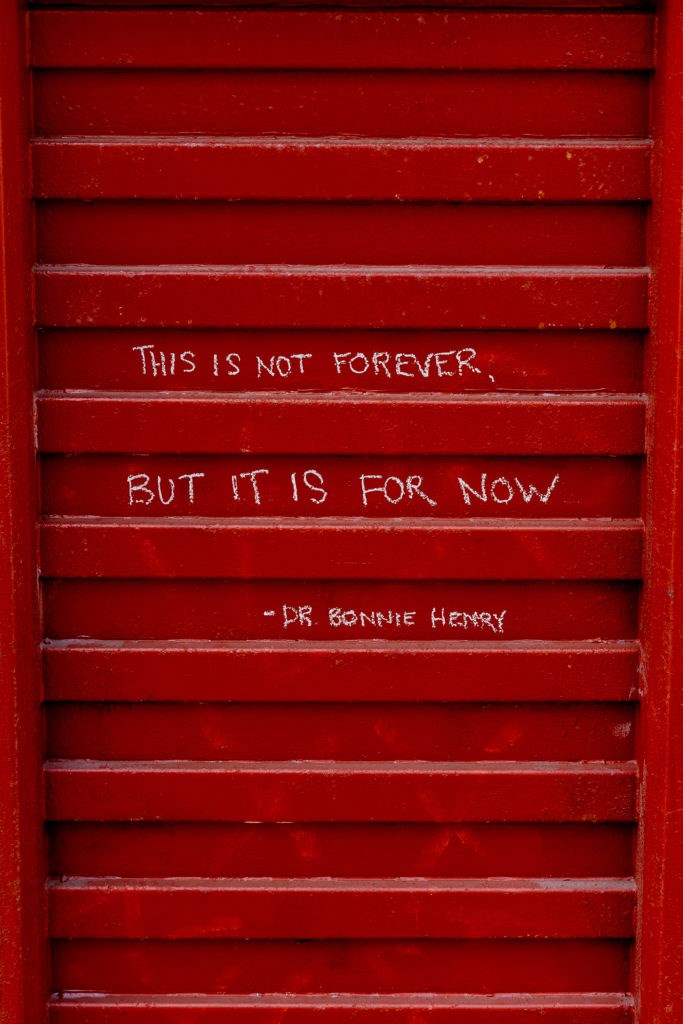 THIS IS NOT FOREVER,
BUT IT IS FOR NOW
- DR. BONNIE HENRY